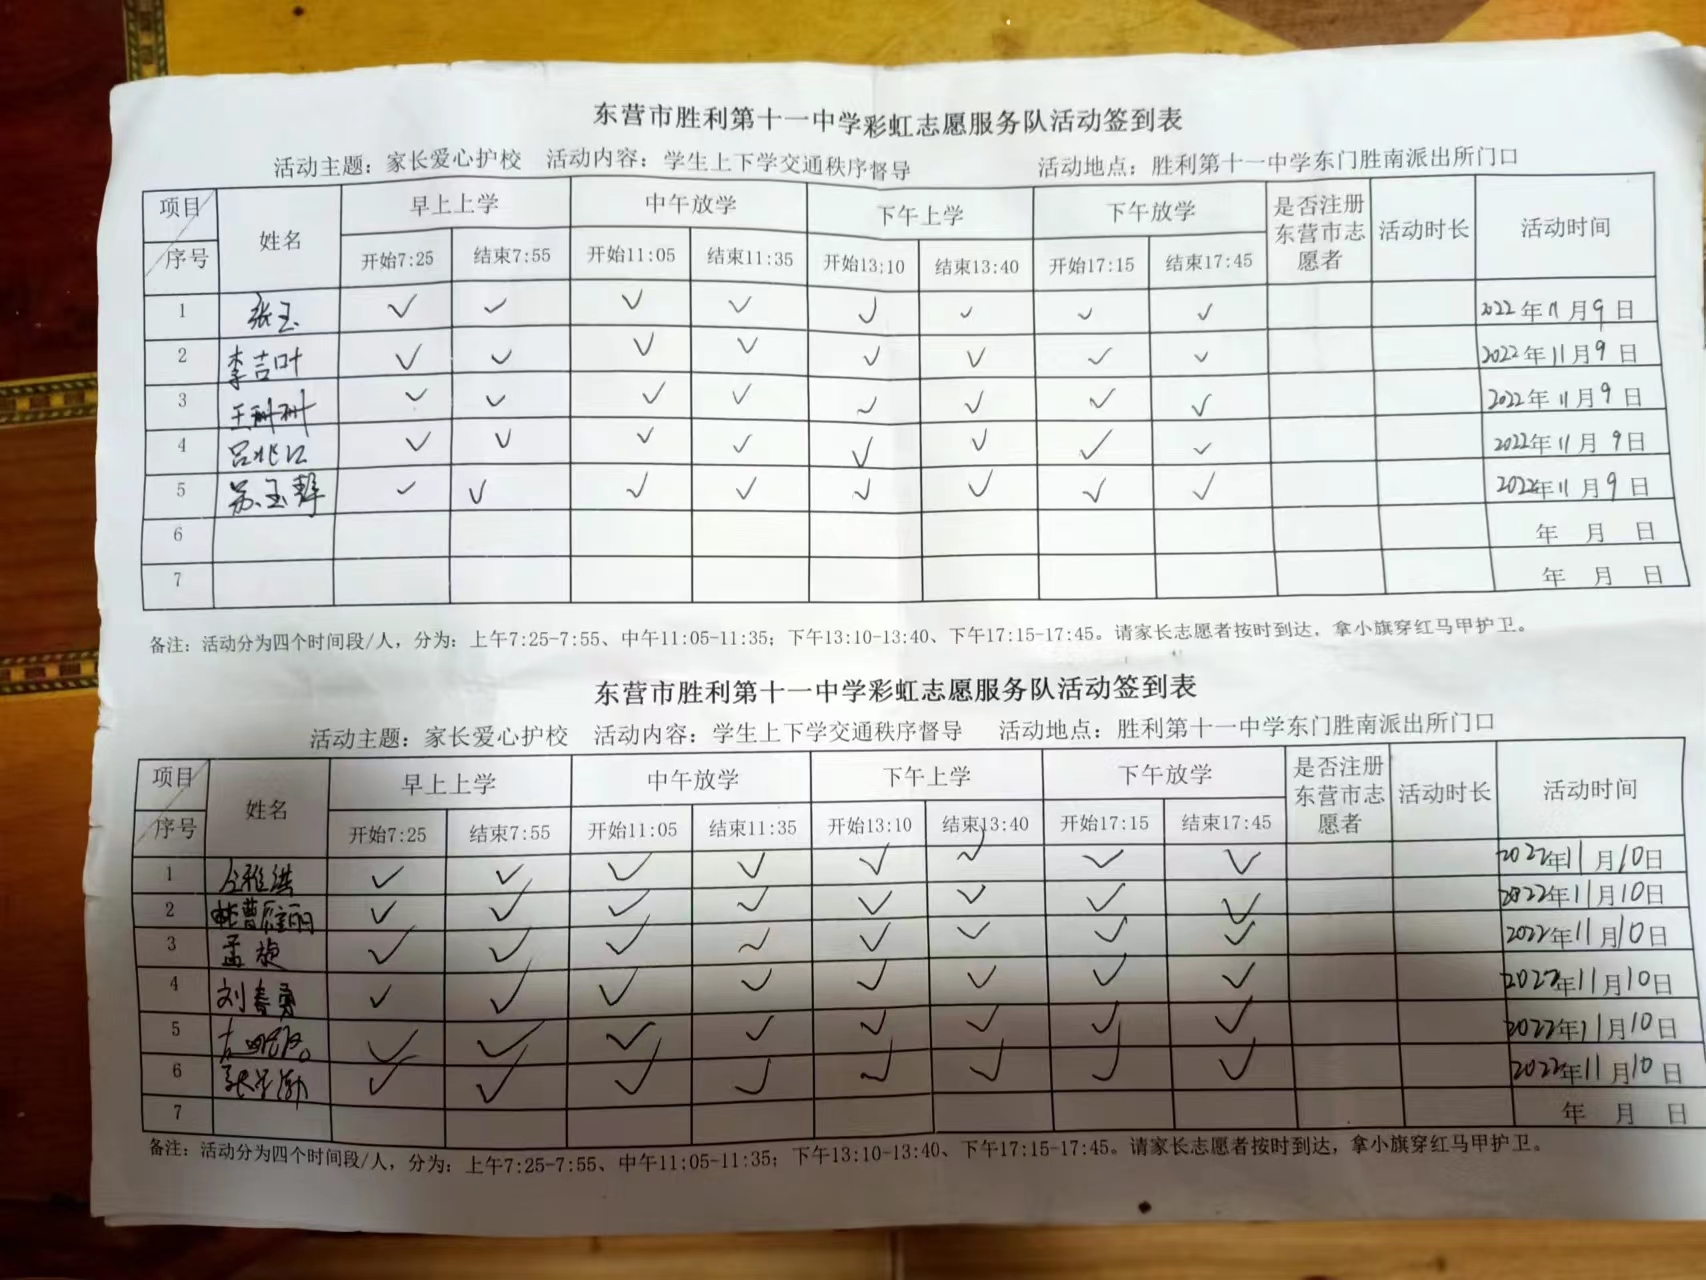 东营市胜利第十一中学彩虹志愿服务队活动签到表
活动主题：家长爱心护校 活动内容：学生上下学交通秩序督导 活动地点：胜利第十一中学东门胜南派出所门口
项目 序号 姓名 早上上学 中午放学 下午上学 下午放学 是否注册东营市志愿者 活动时长 活动时间
开始7:25 结束7:55 开始11:05 结束11:35 开始13:10 结束13:40 开始17:15 结束17:45
1 张玉 ✓ ✓ ✓ ✓ ✓ ✓ ✓ ✓ 2022年11月9日
2 李吉叶 ✓ ✓ ✓ ✓ ✓ ✓ ✓ ✓ 2022年11月9日
3 王 ✓ ✓ ✓ ✓ ✓ ✓ ✓ ✓ 2022年11月9日
4 吕兆江 ✓ ✓ ✓ ✓ ✓ ✓ ✓ ✓ 2022年11月9日
5 苏玉 ✓ ✓ ✓ ✓ ✓ ✓ ✓ ✓ 2022年11月9日
6 年 月 日
7 年 月 日
备注：活动分为四个时间段/人，分为：上午7:25-7:55、中午11:05-11:35；下午13:10-13:40、下午17:15-17:45。请家长志愿者按时到达，拿小旗穿红马甲护卫。
东营市胜利第十一中学彩虹志愿服务队活动签到表
活动主题：家长爱心护校 活动内容：学生上下学交通秩序督导 活动地点：胜利第十一中学东门胜南派出所门口
项目 序号 姓名 早上上学 中午放学 下午上学 下午放学 是否注册东营市志愿者 活动时长 活动时间
开始7:25 结束7:55 开始11:05 结束11:35 开始13:10 结束13:40 开始17:15 结束17:45
1 ✓ ✓ ✓ ✓ ✓ ✓ ✓ ✓ 2022年11月10日
2 ✓ ✓ ✓ ✓ ✓ ✓ ✓ ✓ 2022年11月10日
3 孟 ✓ ✓ ✓ ✓ ✓ ✓ ✓ ✓ 2022年11月10日
4 刘春勇 ✓ ✓ ✓ ✓ ✓ ✓ ✓ ✓ 2022年11月10日
5 ✓ ✓ ✓ ✓ ✓ ✓ ✓ ✓ 2022年11月10日
6 张 ✓ ✓ ✓ ✓ ✓ ✓ ✓ ✓ 2022年11月10日
7 年 月 日
备注：活动分为四个时间段/人，分为：上午7:25-7:55、中午11:05-11:35；下午13:10-13:40、下午17:15-17:45。请家长志愿者按时到达，拿小旗穿红马甲护卫。